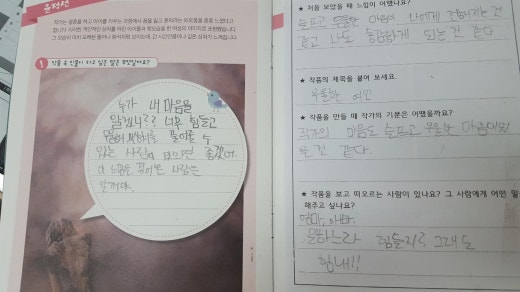 윤정선
작가는 결혼을 하고 아이를 키우는 과정에서 꿈을 잃고 혼자라는 외로움을 종종 느꼈다고
합니다.
1 작품 속 인물이 하고 싶은 말은 무엇일까요?
누가 내 마음을
알겠니? 너무 힘들고
풀어줄 수
있는 사람이 있으면 좋겠어
내 느낌을
알까나.
★ 처음 보았을 때 느낌이 어땠나요?
슬프고 우울한 마음이 나에게 전해지는 것
같고 나도 되는 것 같다
★ 작품의 제목을 붙여 보세요.
우울한 여인
★ 작품을 만들 때 작가의 기분은 어땠을까요?
작가의 마음도 슬프고 우울한 마음이었
을 것 같다.
★ 작품을 보고 떠오르는 사람이 있나요? 그 사람에게 어떤 말
해주고 싶나요?
엄마, 아빠.
일하느라 힘들지? 그래도
힘내!!